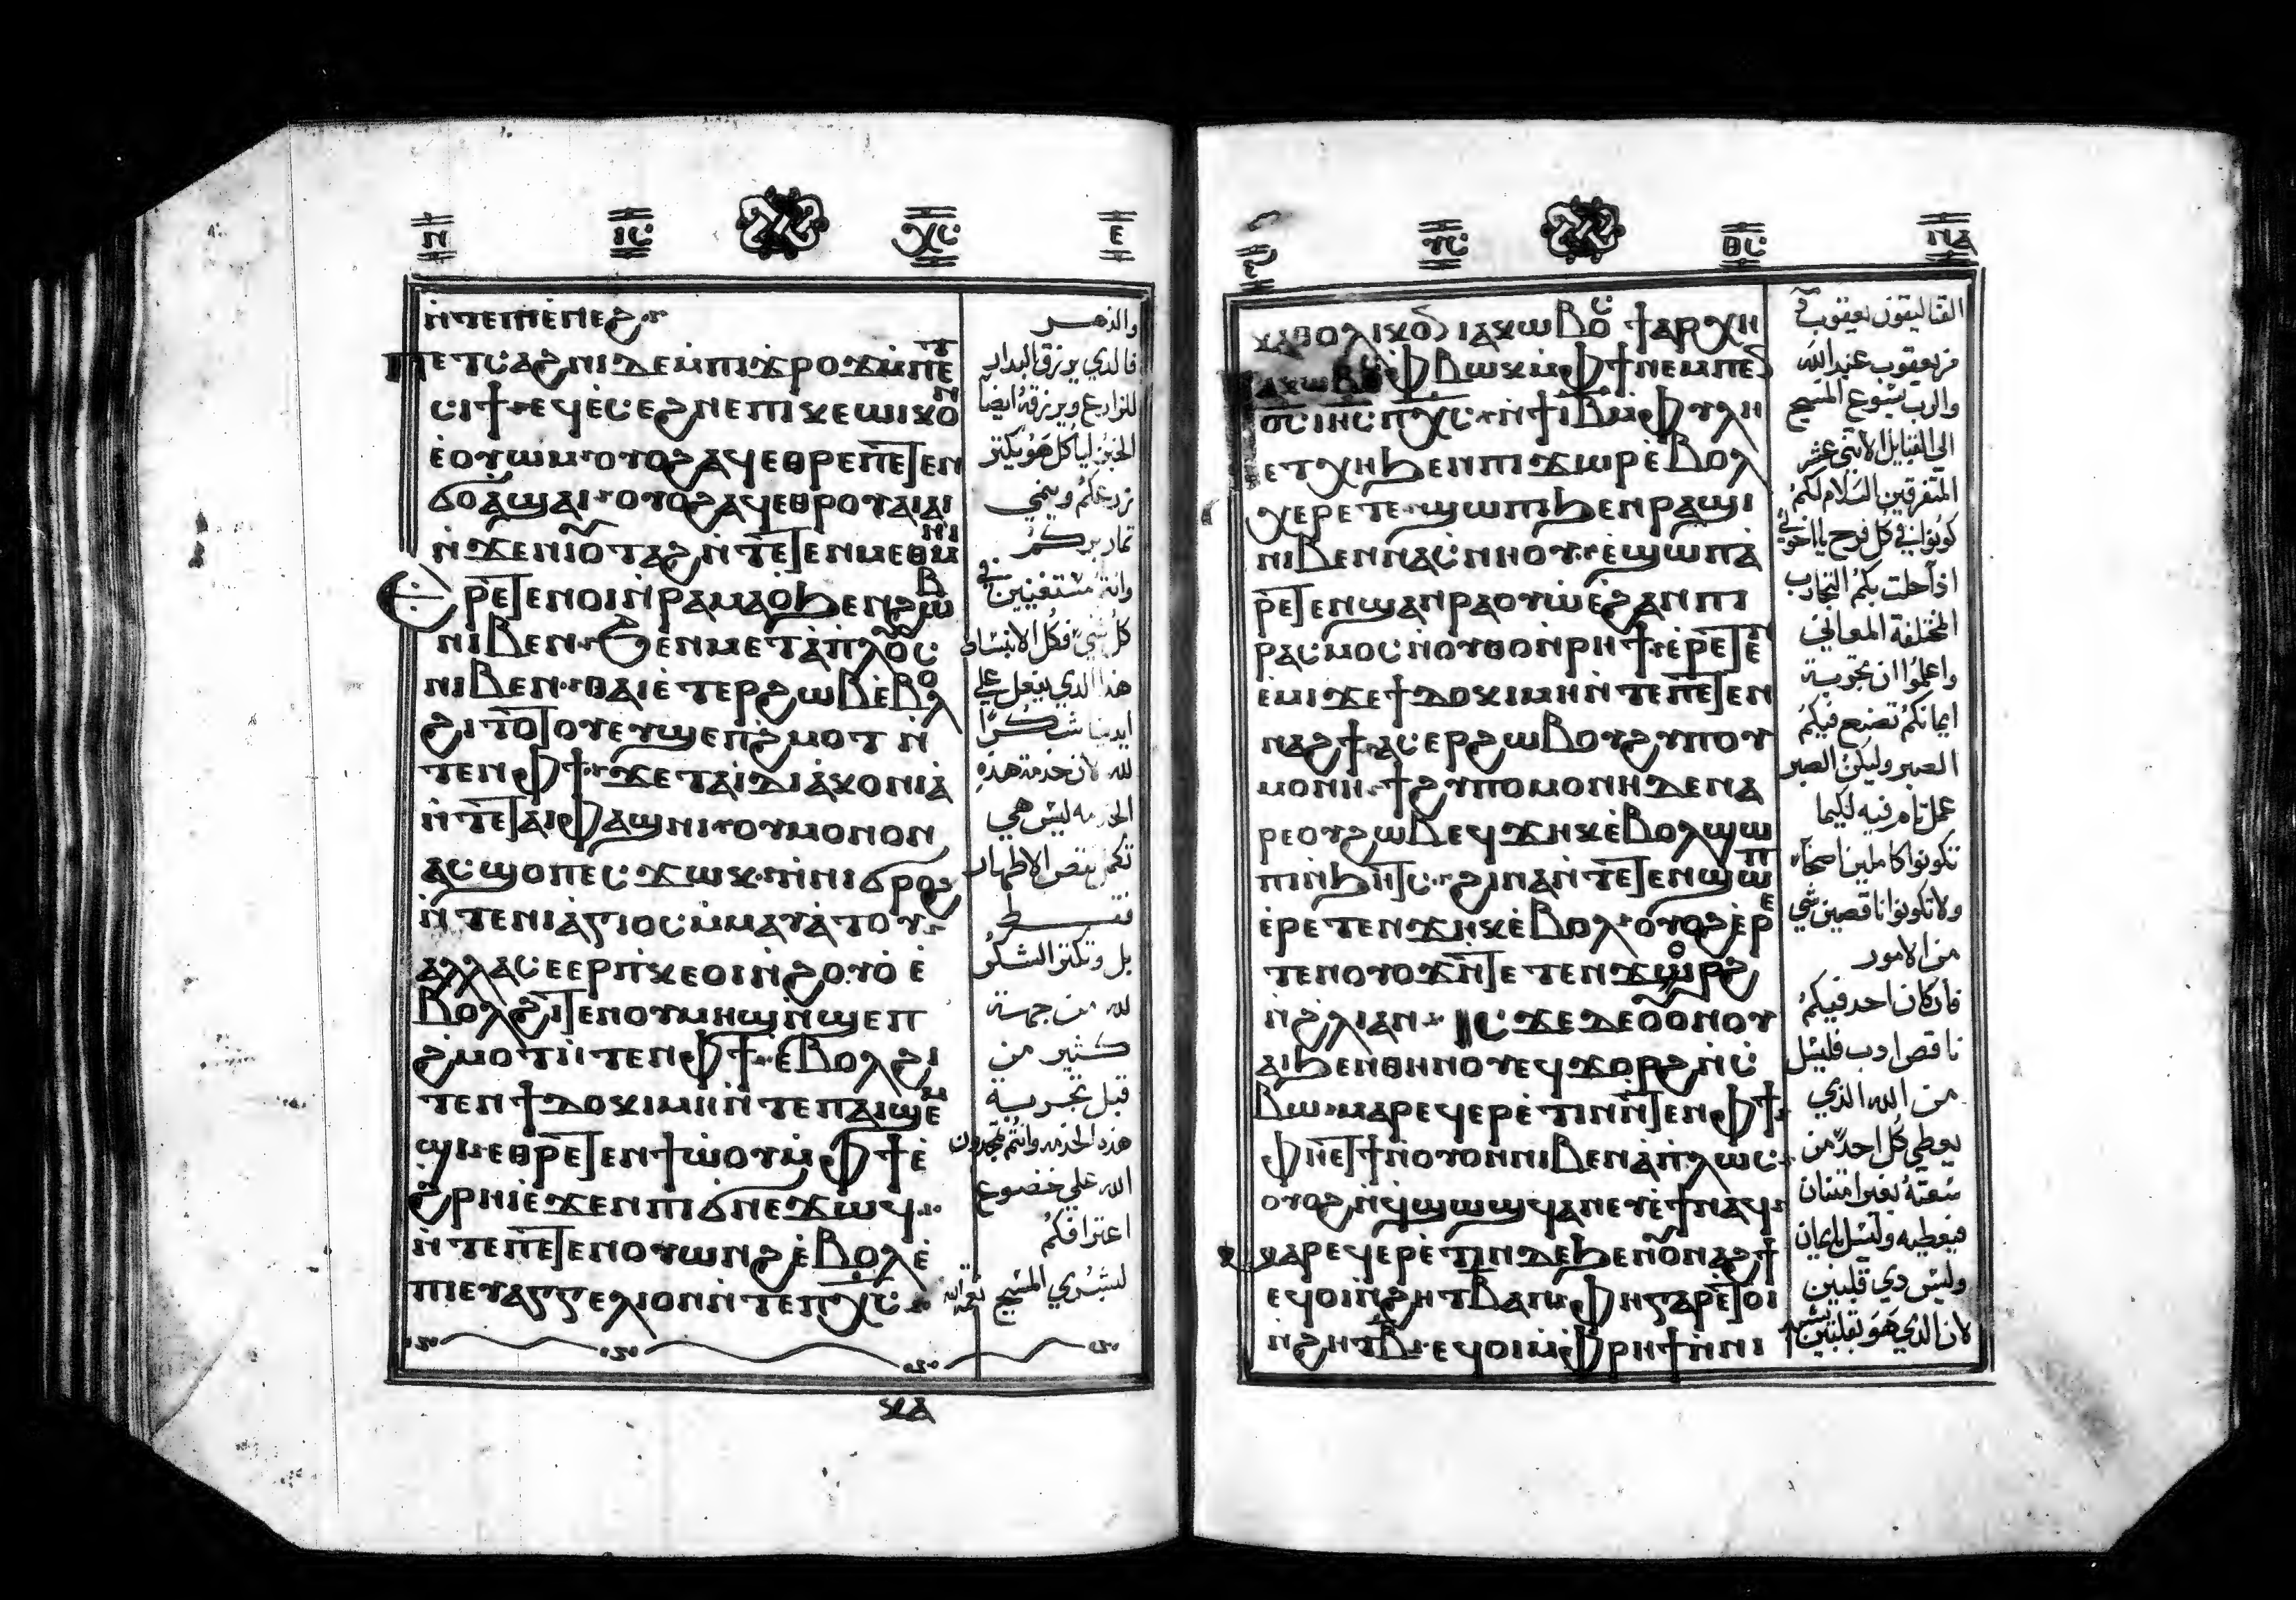 ⲛ̀ⲧⲉⲡⲓⲉⲛⲉϩ
ⲡⲉⲧⲥⲁϩⲛⲓ ⲇⲉ ⲙ̀ⲡⲓϫⲣⲟϫ ⲙ̀ⲡⲉⲧ
ⲥⲓϯ ⲉϥⲉ̀ⲥⲉϩⲛⲉ ⲡⲓⲕⲉⲱⲓⲕⲟⲛ
ⲉ̀ⲟⲩⲱⲙ ⲟⲩⲟϩ ⲁϥⲉⲑⲣⲉ ⲡⲉⲧⲉⲛ
ϭⲟ ⲁϣⲁⲓ ⲟⲩⲟϩ ⲁϥⲉⲑⲣⲟⲩⲁⲓⲁⲓ
ⲛ̀ϫⲉ ⲛⲓⲟⲩⲧⲁϩ ⲛ̀ⲧⲉⲧⲉⲛⲙⲉⲑⲙⲏⲓ
ⲉⲣⲉⲧⲉⲛⲟⲓ ⲛ̀ⲣⲁⲙⲁⲟ ϧⲉⲛ ϩⲱⲃ
ⲛⲓⲃⲉⲛ ϧⲉⲛ ⲙⲉⲧⲁⲡⲗⲟⲩⲥ
ⲛⲓⲃⲉⲛ ⲑⲁⲓ ⲉ̀ⲧⲉⲣϩⲱⲃ ⲉ̀ⲃⲟⲗ
ϩⲓⲧⲟⲧⲟⲩ ⲉⲩϣⲉⲡϩⲙⲟⲧ ⲛ̀
ⲧⲉⲛ ⲫϯ ϫⲉ ⲧⲁⲓⲇⲓⲁⲕⲟⲛⲓⲁ
ⲛ̀ⲧⲉ ⲧⲁⲓⲫⲁϣⲛⲓ ⲟⲩⲙⲟⲛⲟⲛ
ⲁⲥϣⲟⲡ ⲉⲥϫⲱⲕ ⲛ̀ⲛⲓϭⲣⲟϩ
ⲛ̀ⲧⲉ ⲛⲓⲁ̀ⲅⲓⲟⲥ ⲙ̀ⲙⲁⲩⲁⲧⲟⲩ
ⲁⲗⲗⲁ ⲥⲉⲉⲣⲡⲕⲉⲟⲓ ⲛ̀ϩⲟⲩⲟ ⲉ̀
ⲃⲟⲗ ϩⲓⲧⲉⲛ ⲟⲩⲙⲏϣ ⲛ̀ϣⲉⲡ
ϩⲙⲟⲧ ⲛ̀ⲧⲉⲛ ⲫϯ ⲉ̀ⲃⲟⲗ ϩⲓ
ⲧⲉⲛ ϯⲇⲟⲕⲓⲙⲏ ⲛ̀ⲧⲉ ⲡⲁⲓϣⲉⲙ
ϣⲓ ⲉⲑⲣⲉⲧⲉⲛϯⲱⲟⲩ ⲙ̀ⲫϯ ⲉ̀
ϩⲣⲏⲓ ⲉϫⲉⲛ ⲡⲓϭⲛⲉϫⲱϥ
ⲛ̀ⲧⲉ ⲡⲉⲧⲉⲛⲟⲩⲱⲛϩ ⲉ̀ⲃⲟⲗ ⲉ̀
ⲡⲓⲉⲩⲁⲅⲅⲉⲗⲓⲟⲛ ⲛ̀ⲧⲉ ⲡⲭⲥ
والدهر
فالذي يرزق البدار
للزارع ويرزقه ايضا
الخبز لياكل هو يكثر
زرعكم وينمي
ثمار بركم
وانتم مستغنيين في
كل شي فى كل الانبساط
هذا الذي يفعل على
ايدينا شكرا
لله لان خدمة هذه
الخدمه ليس هي
تكمل نقص الاطهار
فقط
بل وتكثر الشكر
لله من جهة
كثير من
قبل تجربة
هذه الخدمه وانتم تمجدون
الله على خضوع
اعترافكم
لبشرى المسيح
ⲕⲁⲑⲟⲗⲓⲕⲟⲛ ⲓⲁⲕⲱⲃⲟⲥ ϯⲁⲣⲭⲏ
ⲓⲁⲕⲱⲃⲟⲥ ⲫⲃⲱⲕ ⲙ̀ⲫϯ ⲛⲉⲙ ⲡⲉⲛ
ⲟ̅ⲥ̅ ⲓⲏⲥ ⲡⲭⲥ ⲛ̀ϯⲓⲃ ⲙ̀ⲫⲩⲗⲏ
ⲉⲧⲭⲏ ϧⲉⲛ ⲡⲓϫⲱⲣ ⲉ̀ⲃⲟⲗ
ⲭⲉⲣⲉⲧⲉ ϣⲱⲡⲓ ϧⲉⲛ ⲣⲁϣⲓ
ⲛⲓⲃⲉⲛ ⲛⲁⲥⲛⲏⲟⲩ ⲉ̀ϣⲱⲡ ⲁ
ⲣⲉⲧⲉⲛϣⲁⲛⲣⲁⲟⲩⲱ ⲉ̀ϩⲁⲛⲡⲓ
ⲣⲁⲥⲙⲟⲥ ⲛ̀ⲟⲩⲑⲟ ⲛ̀ⲣⲏϯ ⲉ̀ⲣⲉⲧⲉⲛ
ⲉ̀ⲙⲓ ϫⲉ ϯⲇⲟⲕⲓⲙⲏ ⲛ̀ⲧⲉ ⲡⲉⲧⲉⲛ
ⲛⲁϩϯ ⲁⲥⲉⲣϩⲱⲃ ⲟⲩϩⲩⲡⲟⲩ
ⲙⲟⲛⲏ ϯϩⲩⲡⲟⲙⲟⲛⲏ ⲇⲉ ⲛⲁ
ⲣⲉ ⲟⲩϩⲱⲃ ⲉϥϫⲏⲕ ⲉ̀ⲃⲟⲗ ϣⲱ
ⲡⲓ ⲛ̀ϧⲏⲧⲥ ϩⲓⲛⲁ ⲛ̀ⲧⲉⲧⲉⲛϣⲱⲡⲓ
ⲉ̀ⲣⲉⲧⲉⲛϫⲏⲕ ⲉ̀ⲃⲟⲗ ⲟⲩⲟϩ ⲉ̀ⲣⲉ
ⲧⲉⲛⲟⲩⲟϫ ⲛ̀ⲧⲉⲧⲉⲛϫⲱⲣϩ
ⲛ̀ϩⲗⲓ ⲁⲛ ⲓⲥϫⲉ ⲇⲉ ⲟⲩⲟⲛ ⲟⲩ
ⲁⲓ ϧⲉⲛ ⲑⲏⲛⲟⲩ ⲉϥϫⲟⲣϩ ⲛ̀ⲥ
ⲃⲱ ⲙⲁⲣⲉϥⲉⲣⲉⲧⲓⲛ ⲛ̀ⲧⲉⲛ ⲫϯ
ⲫⲏⲉⲧϯ ⲛ̀ⲟⲩⲟⲛ ⲛⲓⲃⲉⲛ ⲁⲡⲗⲱⲥ
ⲟⲩⲟϩ ⲛ̀ϥϣⲱϣϥ ⲁⲛ ⲉⲩⲉ̀ϯ ⲛⲁϥ
ⲙⲁⲣⲉϥⲉⲣⲉ̀ⲧⲓⲛ ⲇⲉ ϧⲉⲛ ⲟⲩⲛⲁϩϯ
ⲉϥⲟⲓ ⲛ̀ϩⲏⲧ ⲃ ⲁⲛ ⲫⲏ ⲅⲁⲣ ⲉⲧⲟⲓ
ⲛ̀ϩⲏⲧ ⲃ ⲉϥⲟⲓ ⲙ̀ⲫⲣⲏϯ ⲛ̀ⲛⲓ
القثاليقون يعقوب
من يعقوب عبد الله
والرب يسوع المسيح
الى القبايل الاثنى عشر
المتفرقين السلام لكم
كونوا في كل فرح يا اخوتي
اذا حلت بكم التجارب
المختلفة المعاني
واعلموا ان تجربة
ايمانكم تصنع فيكم
الصبر وليكن الصبر
عمل تام فيه لكيما
تكونوا كاملين اصحاء
ولا تكونوا ناقصين شي
من الامور
فان كان احد فيكم
ناقص ادب فليسل
من الله الذي
يعطي كل احد من
سعته بغير امتنان
فيعطيه وليسل بايمان
وليس ذي قلبين
لان الذي هو بقلبين